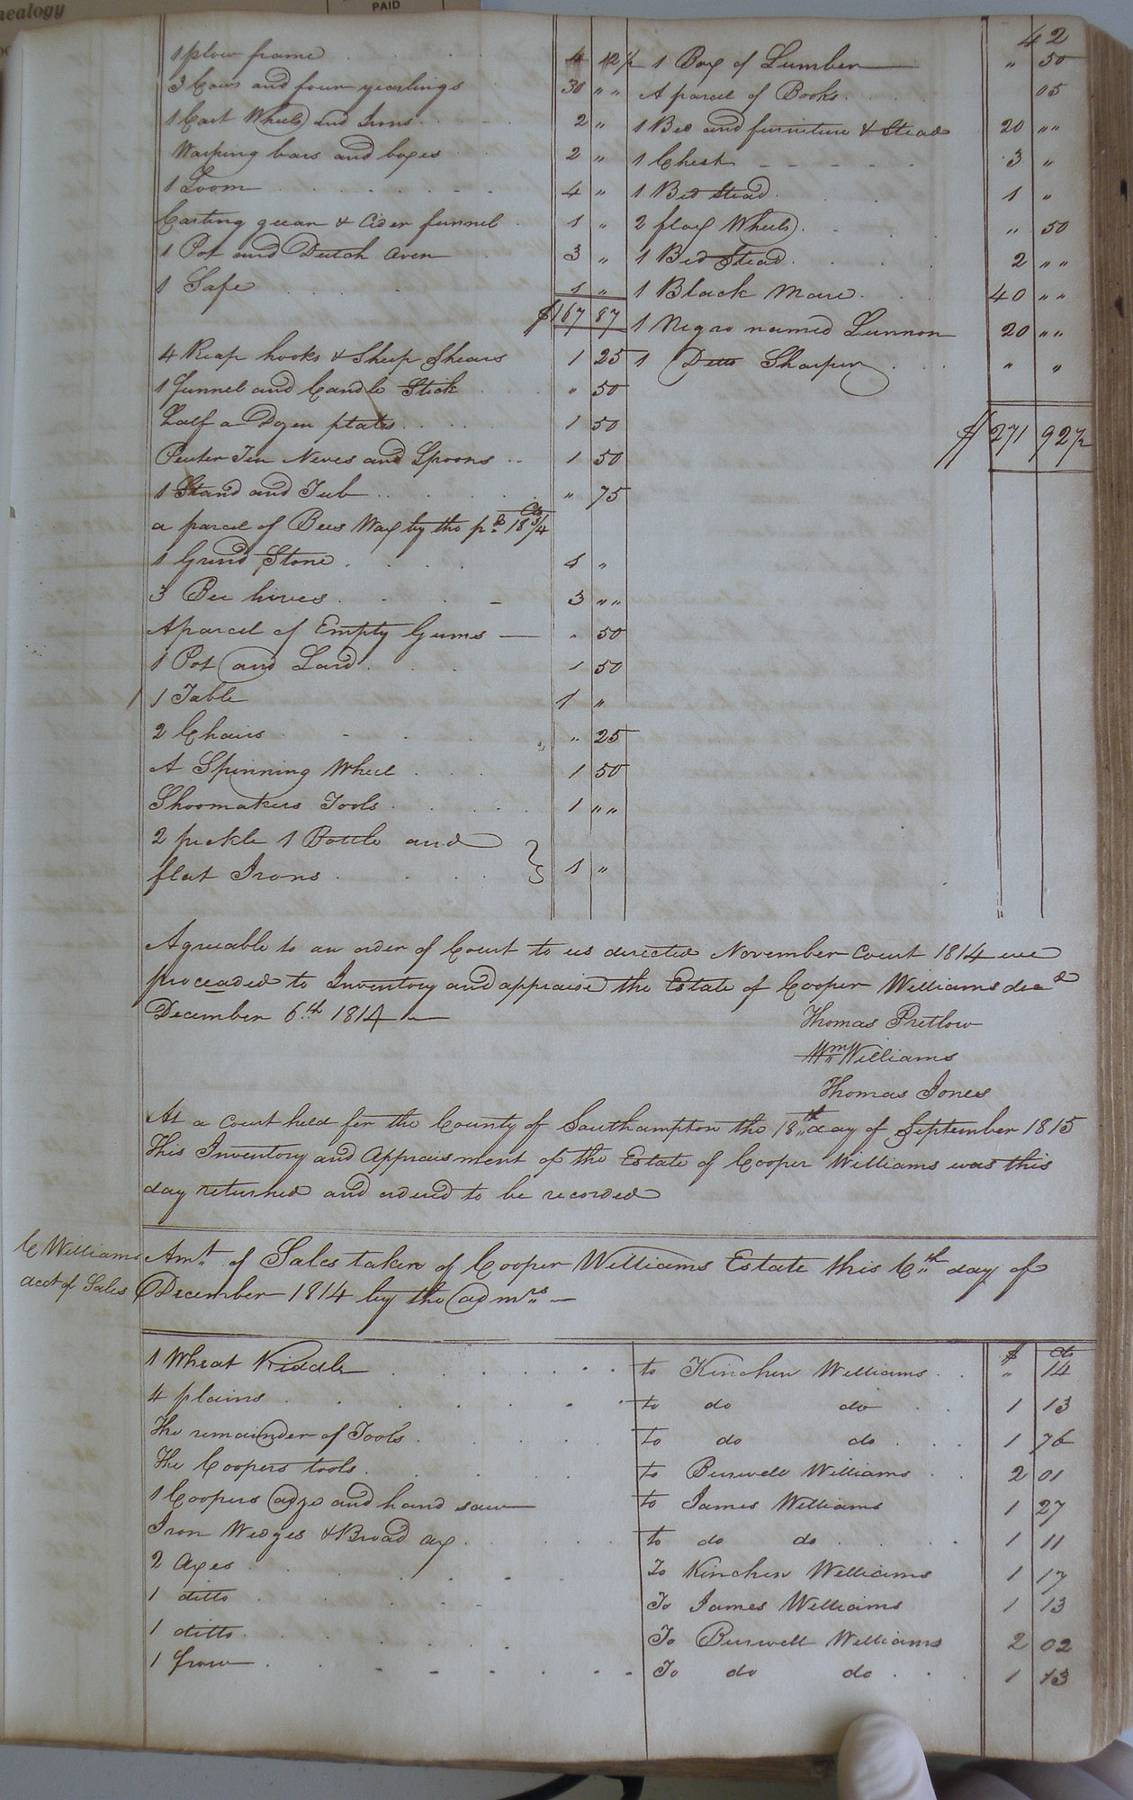 nealogy
PAID
42
1 plow frame 4 12½
3 Cows and four yearlings 30 " "
1 Cart Wheels and Irons 2 "
Warping bars and boxes 2 "
1 Loom 4 "
Carting gear & Cider funnel 1 "
1 Pot and Dutch oven 3 "
1 Safe 1 "
$167 87
4 Reap hooks & Sheep Shears 1 25
1 Funnel and Candle Stick " 50
half a Dozen plates 1 50
Peuter Tin Neves and Spoons 1 50
1 Stand and Tub " 75
a parcel of Bees Wax by the pd 18¾ Cts
1 Grind Stone 1 "
3 Bee hives 3 " "
A parcel of Empty Gums " 50
1 Pot and Lard 1 50
1 Table 1 "
2 Chairs " 25
A Spinning Wheel 1 50
Shoomakers Tools 1 " "
2 pickle 1 Bottle and
flat Irons 1 "
1 Box of Lumber " 50
A parcel of Books 05
1 Bed and furniture & Stead 20 " "
1 Chest 3 "
1 Bed Stead 1 "
2 flax Wheels " 50
1 Bed Stead 2 " "
1 Black Mare 40 " "
1 Negro named Lunnon 20 " "
1 Ditto Sharper " "
$ 271 92½
Agreeable to an order of Court to us directed November Court 1814 we
proceaded to Inventory and appraise the Estate of Cooper Williams decd
December 6th 1814
Thomas Pretlow
Wm Williams
Thomas Jones
At a Court held for the County of Southampton the 18th day of September 1815
This Inventory and Appraisment of the Estate of Cooper Williams was this
day returned and ordered to be recorded
C Williams
acct of Sales
Amt of Sales taken of Cooper Williams Estate this 6th day of
December 1814 by the admrs
$ Cts
1 Wheat Riddle to Kinchen Williams " 14
4 plains to do do 1 13
The remainder of Tools to do do 1 76
The Coopers tools to Burwell Williams 2 01
1 Coopers adze and hand saw to James Williams 1 27
Iron Wedges & Broad ax to do do 1 11
2 Axes To Kinchen Williams 1 17
1 ditto To James Williams 1 13
1 ditto To Burwell Williams 2 02
1 frow To do do 1 13